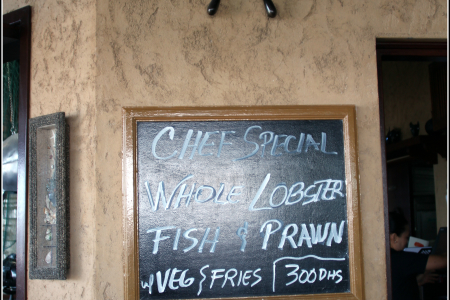 CHEF SPECIAL
WHOLE LOBSTER
FISH & PRAWN
w/ VEG & FRIES 300DHS